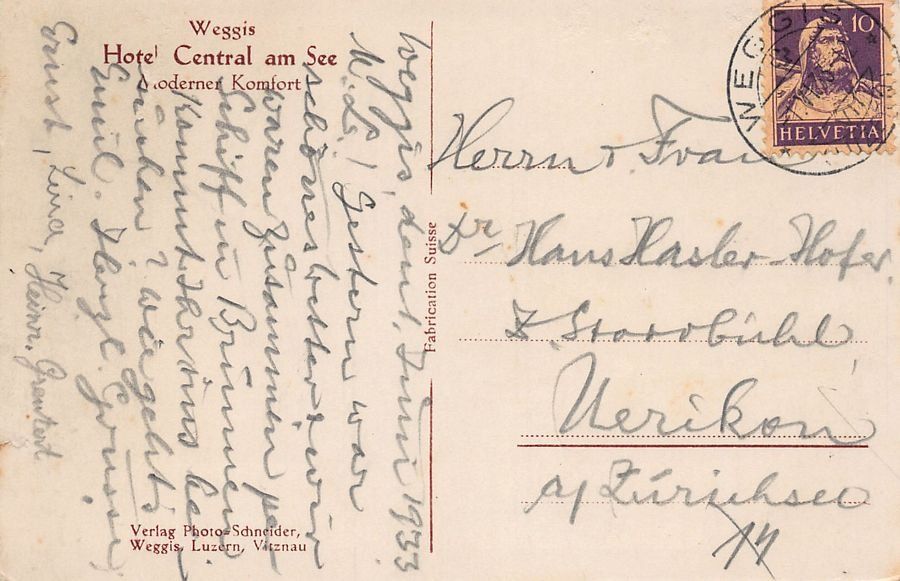 Weggis
Hotel Central am See
Moderner Komfort
Weggis, den 1. Juni 1933
M. L.! Gestern war
schönes Wetter & wir
waren zusammen per
Schiff in Brunnen
Kommt Ihr uns be-
suchen? Wie geht's
Emil. Herzl. Grüsse
Ernst, Lina, Heinr.
Verlag Photo-Schneider,
Weggis, Luzern, Vitznau
Fabrication Suisse
WEGGIS
10
HELVETIA
Herrn & Frau
Dr Hans Hasler-Hofer
z.
Uerikon
a/Zürichsee